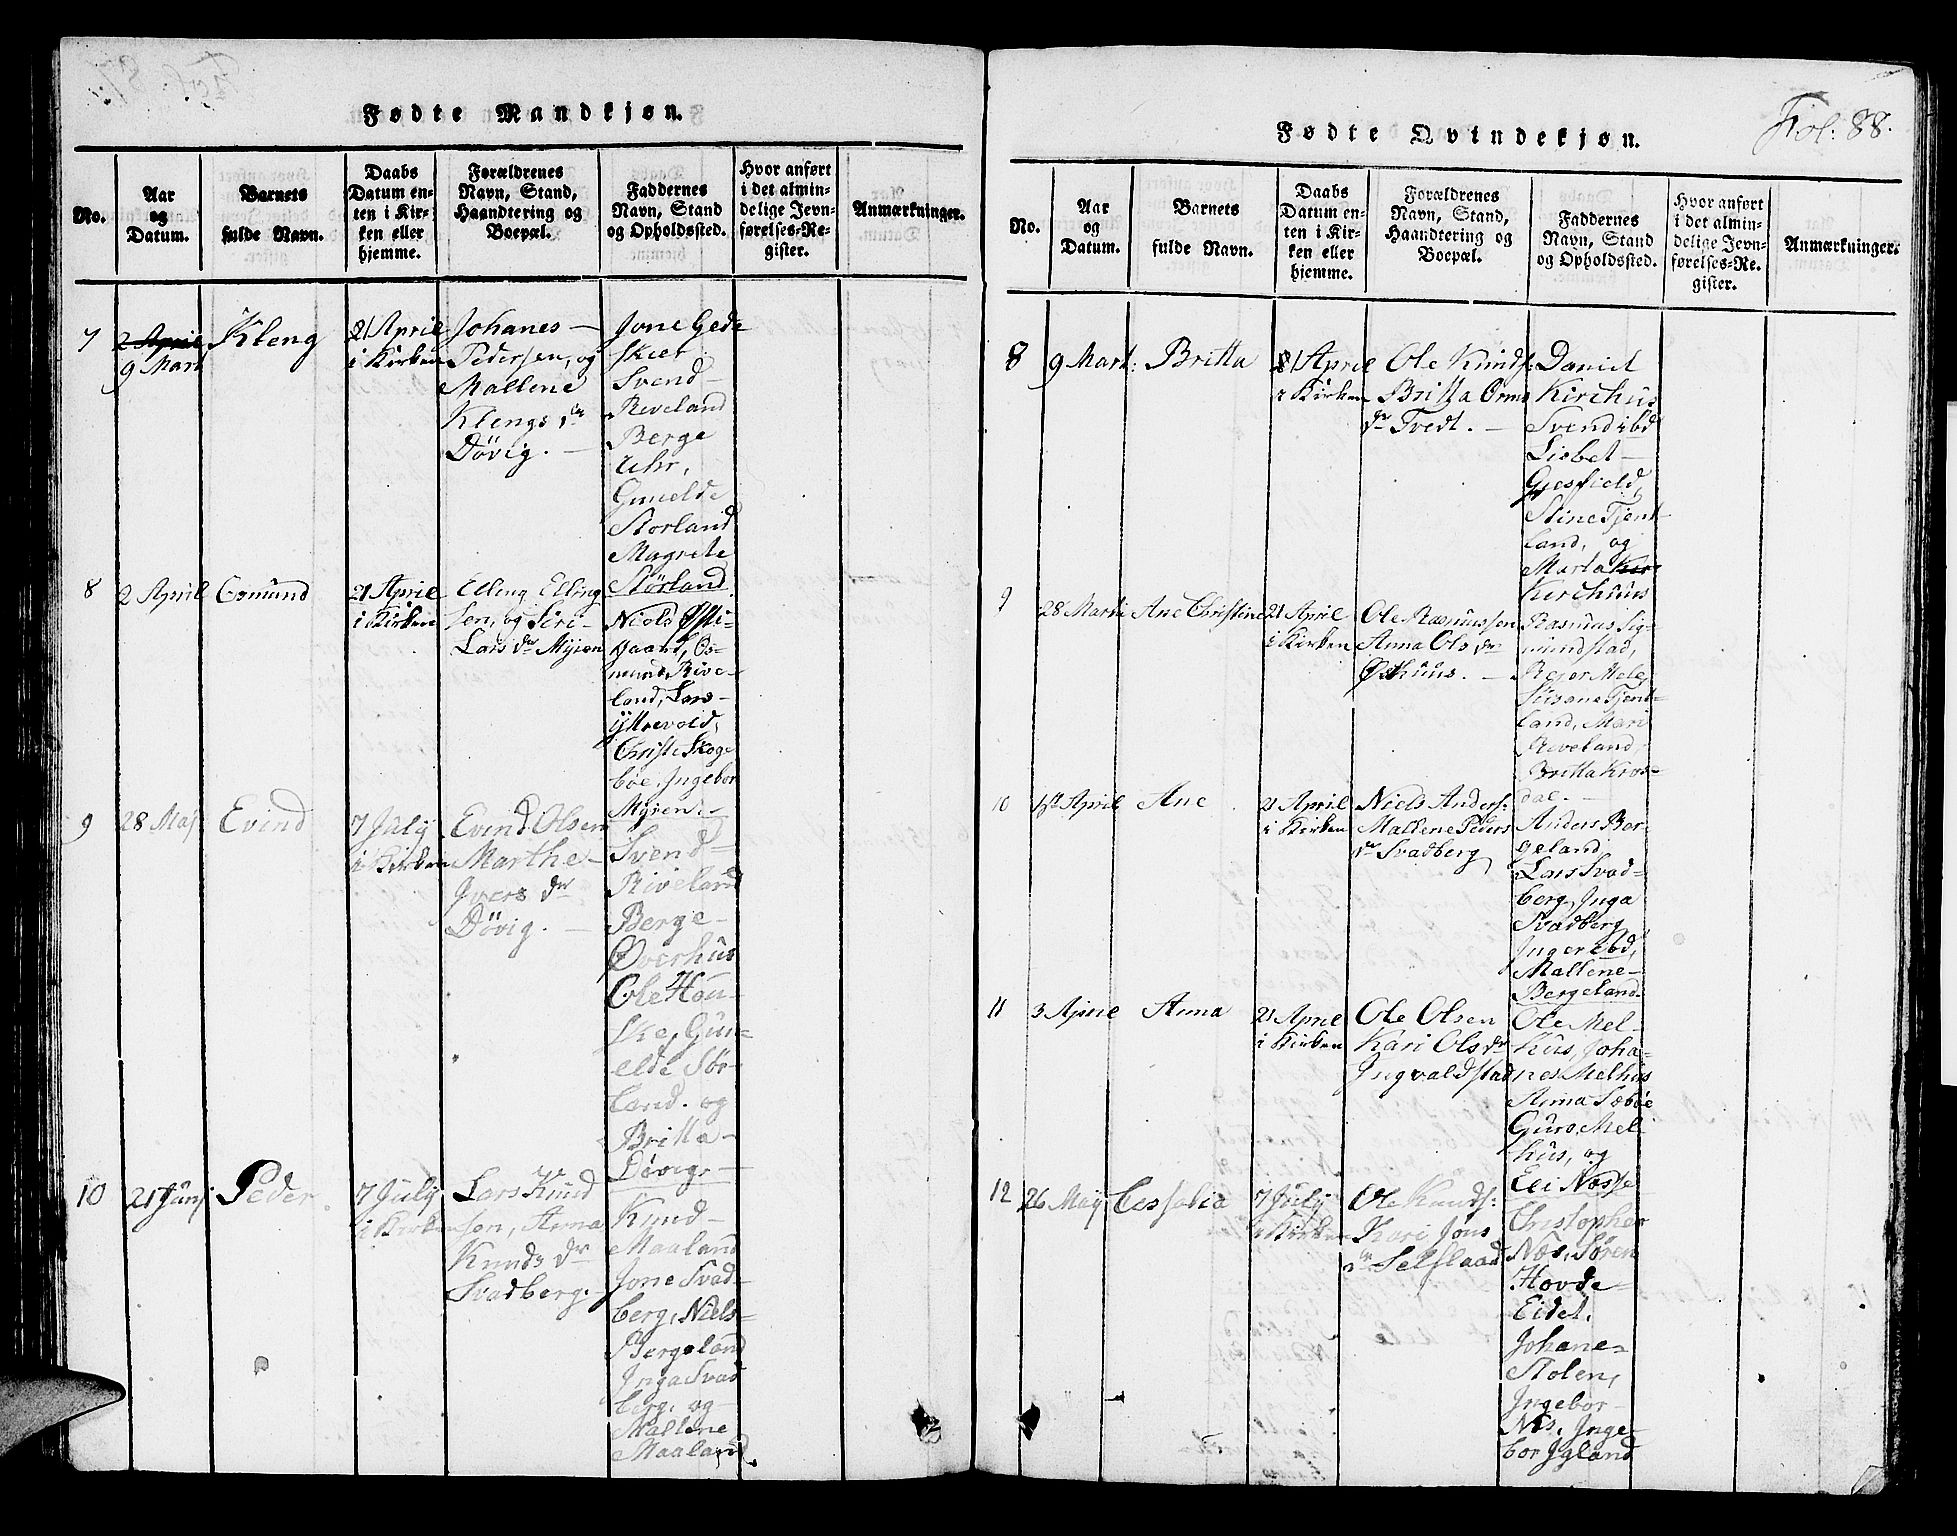 Fødte Mandkjøn.
No.
Aar
og
Datum.
Barnets
fulde Navn.
Daabs
Datum en-
ten i Kir-
ken eller
hjemme.
Forældrenes
Navn, Stand,
Haandtering og
Boepæl.
Faddernes
Navn, Stand
og Opholdssted.
Hvor anført
i det almin-
delige Jevn-
førelses-Re-
gister.
Anmærkninger.
7
2 April
9 Mart
Kleng
21 April
i Kirken
Johanes
Pedersen, og
Mallene
Klengs dr
Dövig.
Jone Gede
skier
Svend
Riveland
Berge
Uhr,
Gunelde
Storland
Magrete
Störland
8
2 April
Osmund
21 April
i Kirken
Elleng Elling
sen, og Siri
Lars dr Myren
Niels Østi-
gaard, Os-
mund Rive-
land, Lars
yttrevold,
Christi Skoge
böe, Ingebor
Myren.
9
28 Maj
Evind
7 July
i Kirken
Evind Olsen
Marthe
Ivers dr
Dövig.
Svend
Riveland
Berge
Øverhus
Ole Hou-
ske, Gun-
elde Sör-
land. og
Britta
Dövig.
10
21 Junj
Peder
7 July
i Kirken
Lars Knud
sen, Anna
Knuds dr
Svadberg.
Knud
Maaland
Jone Svad-
berg, Niels
Bergeland
Inga Svad
berg, og
Mallene
Maaland.
Fol: 88.
Fødte Qvindekjøn.
No.
Aar
og
Datum.
Barnets
fulde Navn.
Daabs
Datum en-
ten i Kir-
ken eller
hjemme.
Forældrenes
Navn, Stand,
Haandtering og
Boepæl.
Faddernes
Navn, Stand
og Opholdssted.
Hvor anført
i det almin-
delige Jevn-
førelses-Re-
gister.
Anmærkninger.
8
9 Mart:
Britta
21 April
i Kirken
Ole Knuds:
Britta Orms
dr Tvedt.
Daniel
Kirchus
Svend ibd
Lisbet
Giesfield,
Stine Tjent-
land, og
Marta
Kirchuus
9
28 Marti
Ane Christine
21 April
i Kirken
Ole Rasmussen
Anna Ols dr
Østhuus.
Rasmus Sig-
mundstad,
Reier Mele,
Susane Tjent-
land, Mari
Riveland,
Britta Kros-
dal.
10
1st April
Ane
21 April
i Kirken
Niels Anders:
Mallene Peders
dr Svadberg
Anders Ber-
geland
Lars Svad-
berg, Inga
Svadberg
Inger ibd,
Mallene
Bergeland.
11
3 Aprie
Anna
21 April
i Kirken
Ole Olsen
Kari Ols dr
Ingvaldstad
Ole Mel-
hus, Joha-
nes Melhus
Anna Sæböe
Guro Mel
hus, og
Eli Næsse
12
26 May
Cessalia
7 July
i Kirken
Ole Knuds:
Kari Jons
dr Selslaad
Christopher
Næs, Sören
Hovde-
Eidet.
Johane
Stolen,
Ingebor
Næs, Inge-
bor Igland